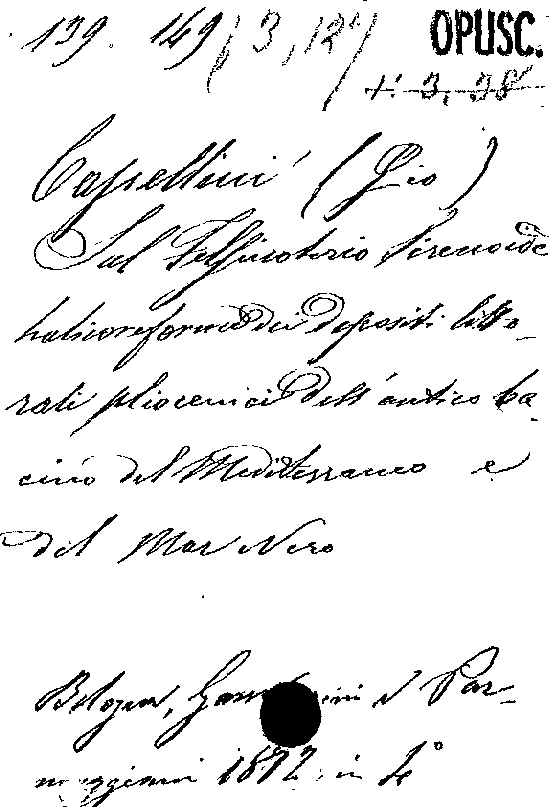 139. 149 (3, 12)
OPUSC.
+. 3, 38
Capellini (Gio)
Sul Felsinoterio Sirenoide
halicoreforme dei depositi litto-
rali pliocenici dell'antico ba-
cino del Mediterraneo e
del Mar Nero
Bologna, Gamberini e Par-
meggiani 1872 in 4°